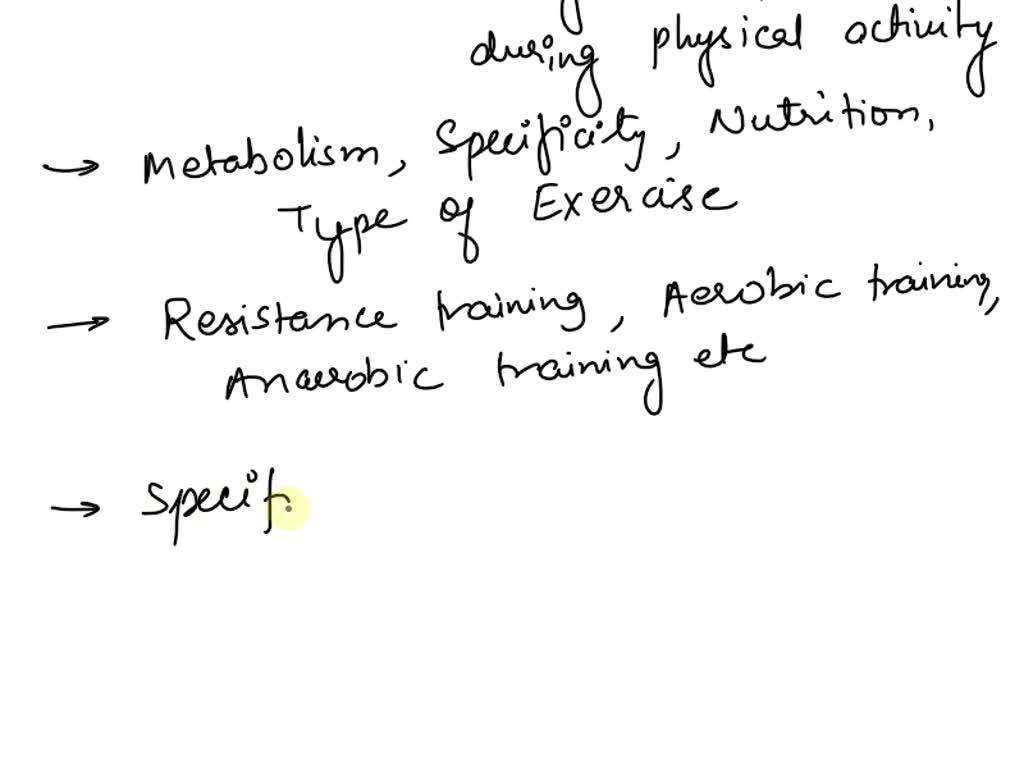 during physical activity
→ Metabolism, Specificity, Nutrition,
Type of Exercise
→ Resistance training, Aerobic training,
Anaerobic training etc
→ Specif